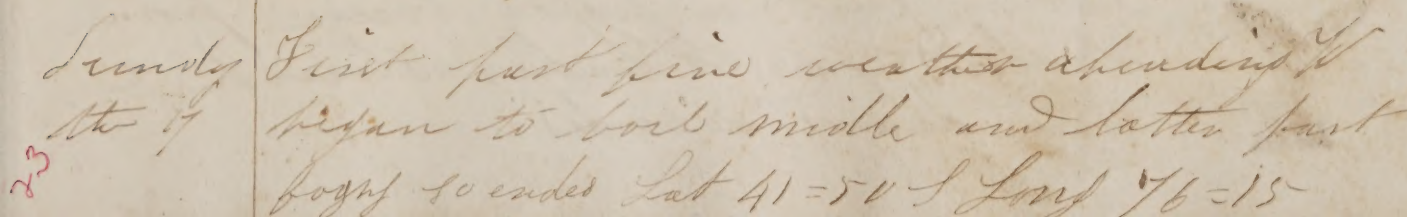 Sundy First part fine weather aheading W
the 17 began to boil midle and latter part
23 fogny so ended Lat 41=50 S Long 76=15